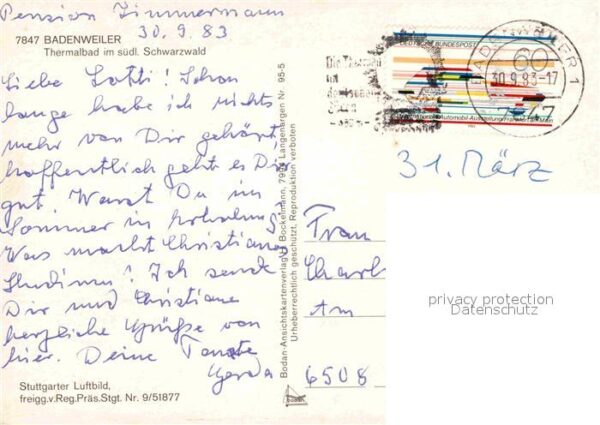 Pension Zimmermann
30.9.83
7847 BADENWEILER
Thermalbad im südl. Schwarzwald
Liebe Lotti! Schon
lange habe ich nichts
mehr von Dir gehört,
hoffentlich geht es Dir
gut. Warst Du im
Sommer in
Was macht Christianes
Studium? Ich sende
Dir und Christiane
herzliche Grüße von
hier. Deine Tante
Gerda
Stuttgarter Luftbild,
freigg.v.Reg.Präs.Stgt. Nr. 9/51877
Bodan-Ansichtskartenverlag H. Bockelmann, 7994 Langenargen Nr. 95-5
Urheberrechtlich geschützt, Reproduktion verboten
DEUTSCHE BUNDESPOST
60
Internationale Automobil-Ausstellung Frankfurt
Die Therme
BADENWEILER 1
30.9.83-17
7847
31. März
Frau
Charl
Am
6508
privacy protection
Datenschutz